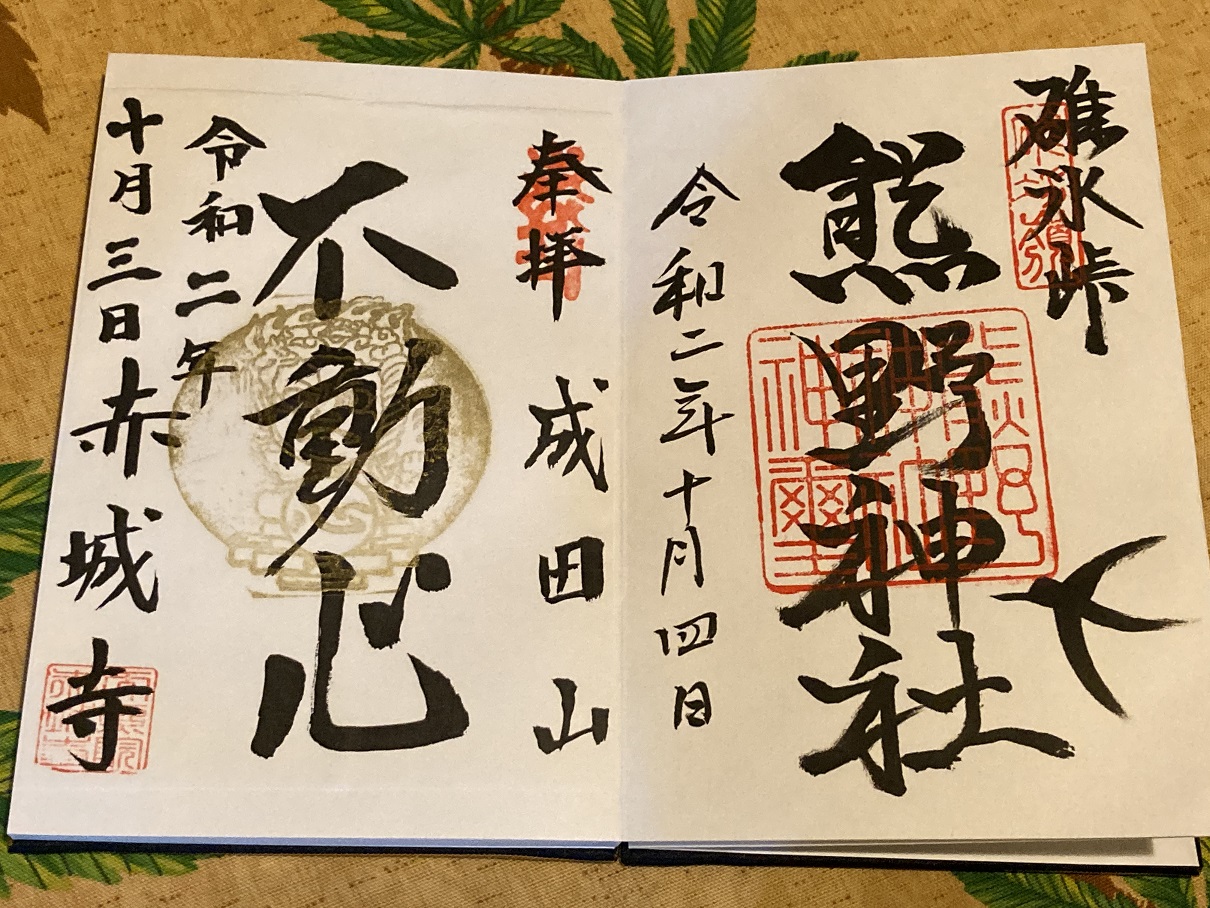 碓氷峠
熊野神社
令和二年十月四日
奉拝
成田山
不動心
令和二年
十月三日
赤城寺